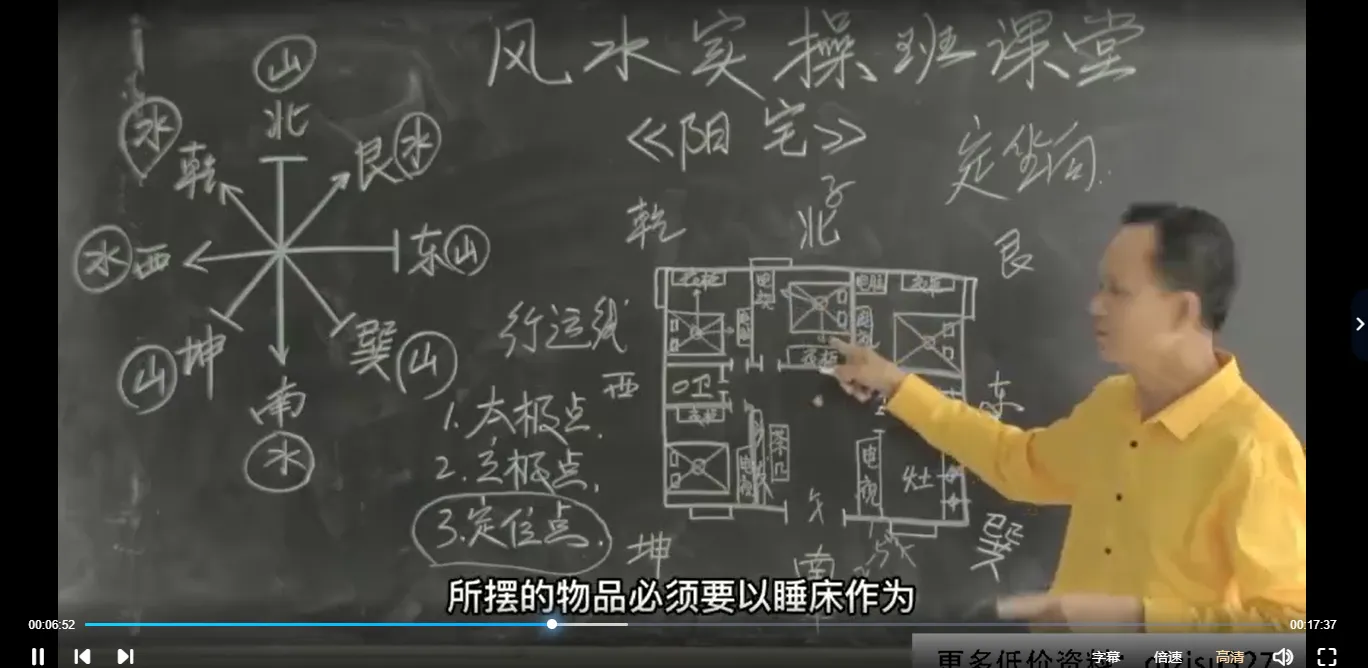 风水实操班课堂
《阳宅》
定坐向.
山
北
水
乾
艮水
水西
东山
山坤
巽山
南
水
行运线
1.太极点.
2.立极点.
3.定位点.
乾
子
北
艮
西
东
坤
午
南
巽
衣柜
电视
电脑
衣柜
卫
衣柜
茶几
电视
灶
所摆的物品必须要以睡床作为
00:06:52
00:17:37
字幕
倍速
高清
更多低价资料: